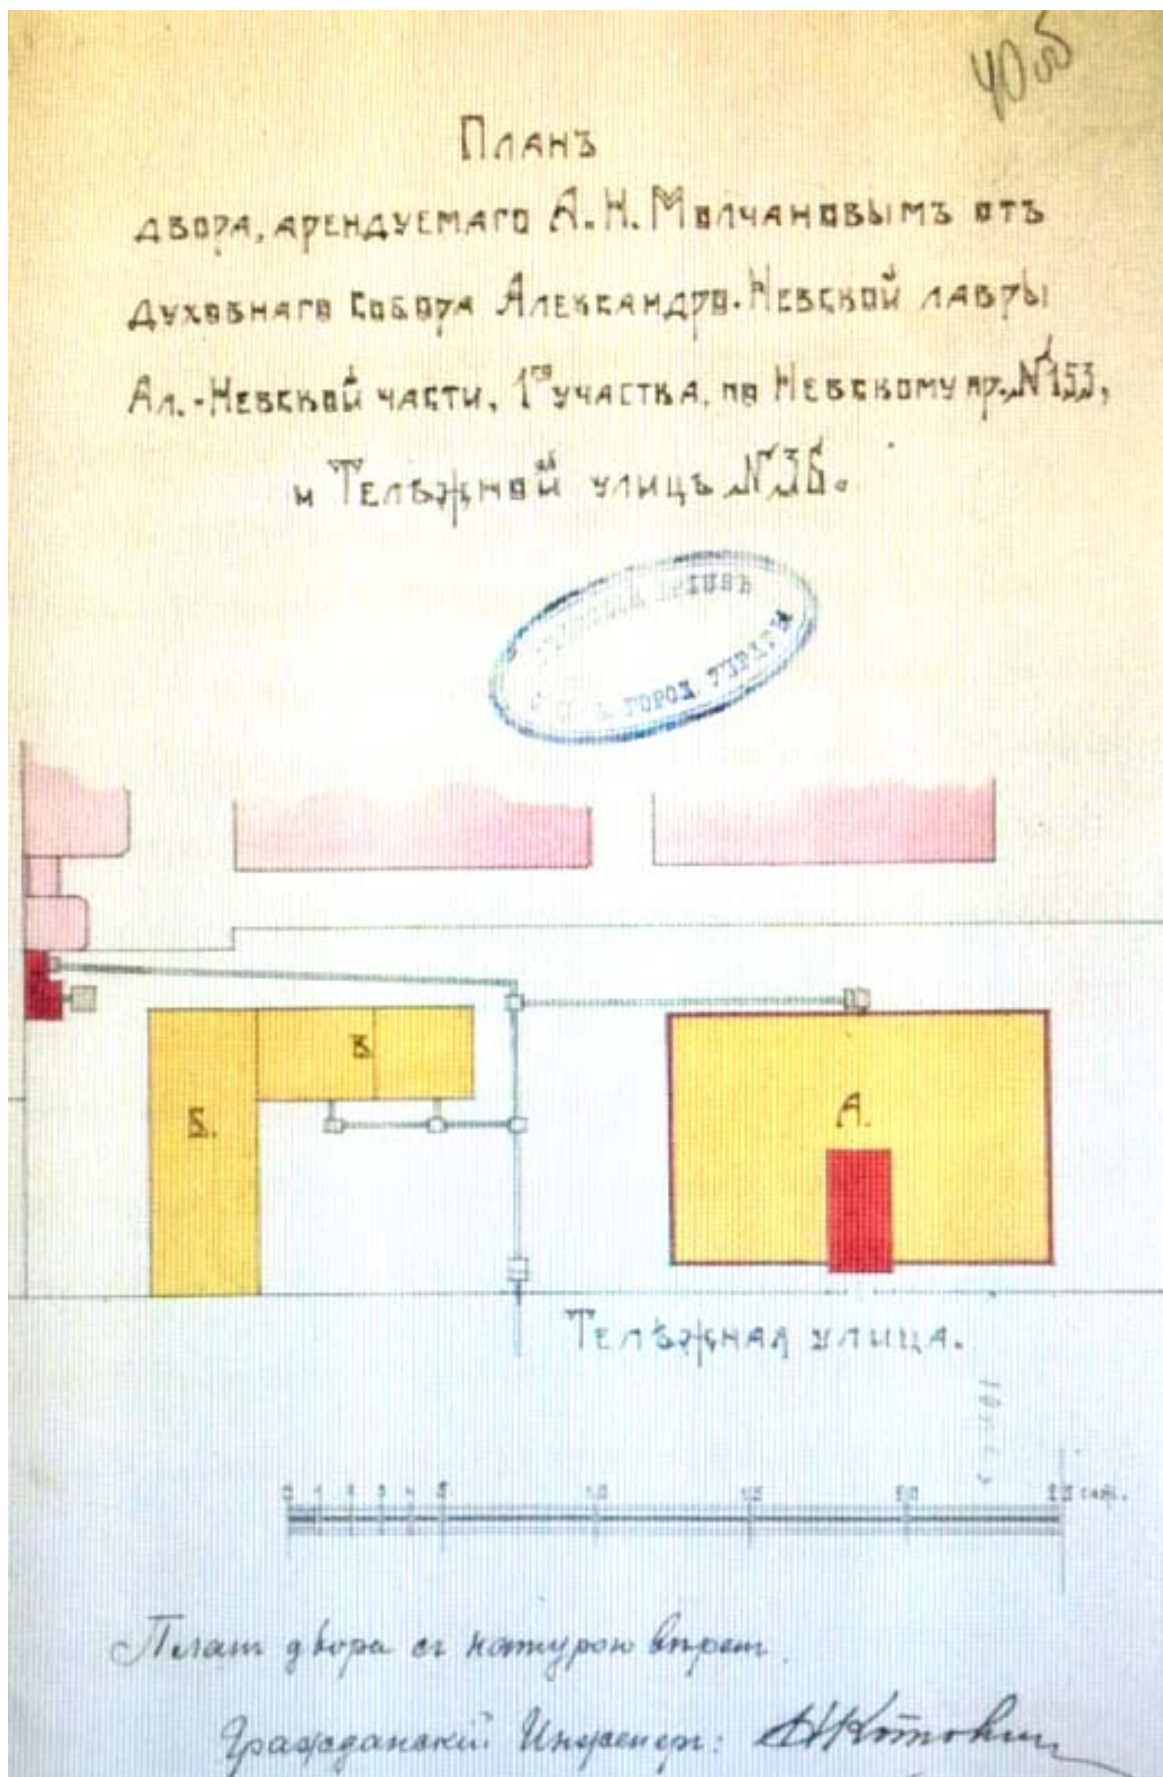 40 об
Планъ
двора, арендуемаго А. Н. Молчановымъ отъ
Духовнаго Собора Александро-Невской лавры
Ал.-Невской части, 1го участка, по Невскому пр. №153,
и Телѣжной улицѣ №36.
АРХИВЪ
ГОРОД. УПРАВЫ
В.
Б.
А.
Телѣжная улица.
0 1 2 3 4 5 10 15 20 25 саж.
Планъ двора съ натурою вѣренъ.
Гражданскій Инженеръ: